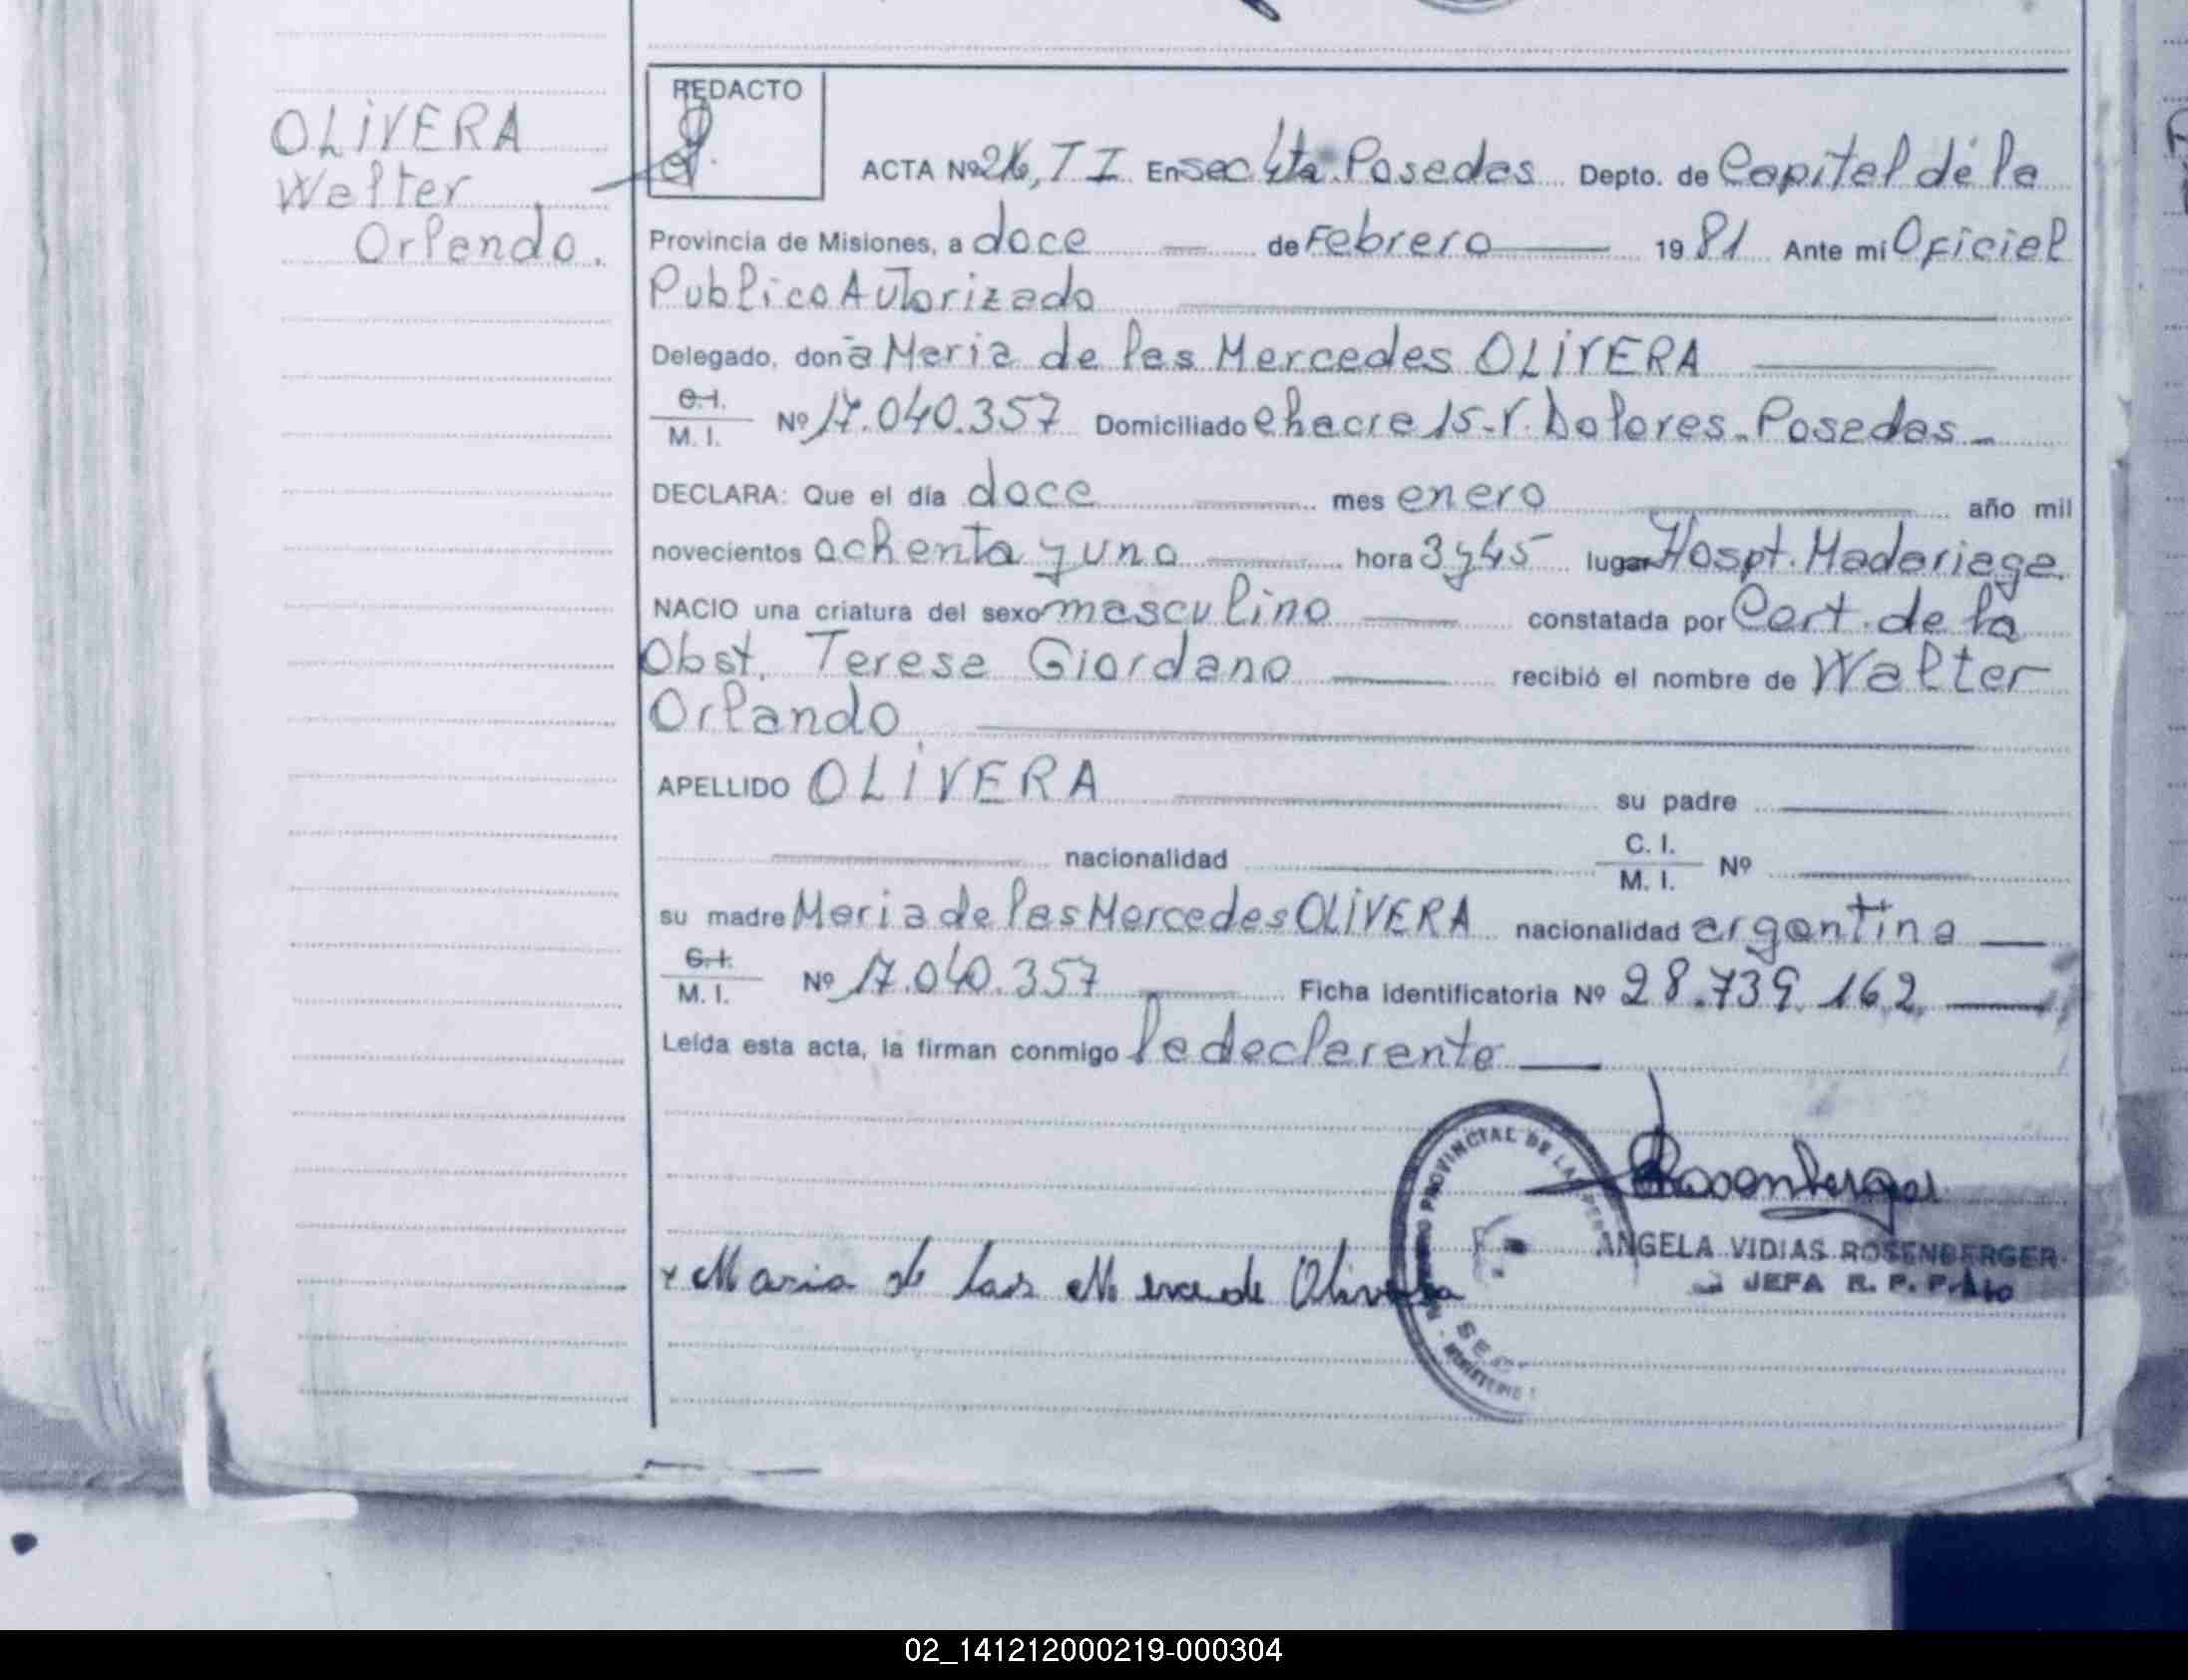 OLIVERA
Walter
Orlando.
REDACTO
ACTA Nº 216, T I En sec 4ta Posadas Depto. de Capital de la
Provincia de Misiones, a doce de Febrero 1981 Ante mi Oficial
Publico Autorizado
Delegado, doña Maria de las Mercedes OLIVERA
C.I. M. I. Nº 17.040.357 Domiciliado chacra 15-V. Dolores-Posadas-
DECLARA: Que el día doce mes enero año mil
novecientos ochenta y uno hora 3 y 45 lugar Hospt. Madariaga
NACIO una criatura del sexo masculino constatada por Cert. de la
Obst. Teresa Giordano recibió el nombre de Walter
Orlando
APELLIDO OLIVERA su padre
nacionalidad C. I. M. I. Nº
su madre Maria de las Mercedes OLIVERA nacionalidad argentina
C.I. M. I. Nº 17.040.357 Ficha identificatoria Nº 28.739.162
Leída esta acta, la firman conmigo la declarante
PROVINCIAL DE LAS
Rosenberger
ANGELA VIDIAS ROSENBERGER
JEFA R. P.
x Maria de las Mercede Olivera
02_141212000219-000304